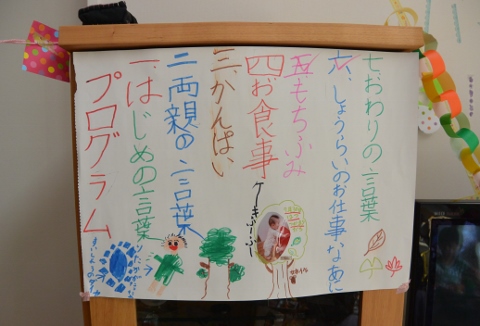 プログラム
一はじめの言葉
二両親の言葉
三、かんぱい
四お食事
ケーキ
五もちふみ
六、しょうらいのお仕事なあに
七おわりの言葉